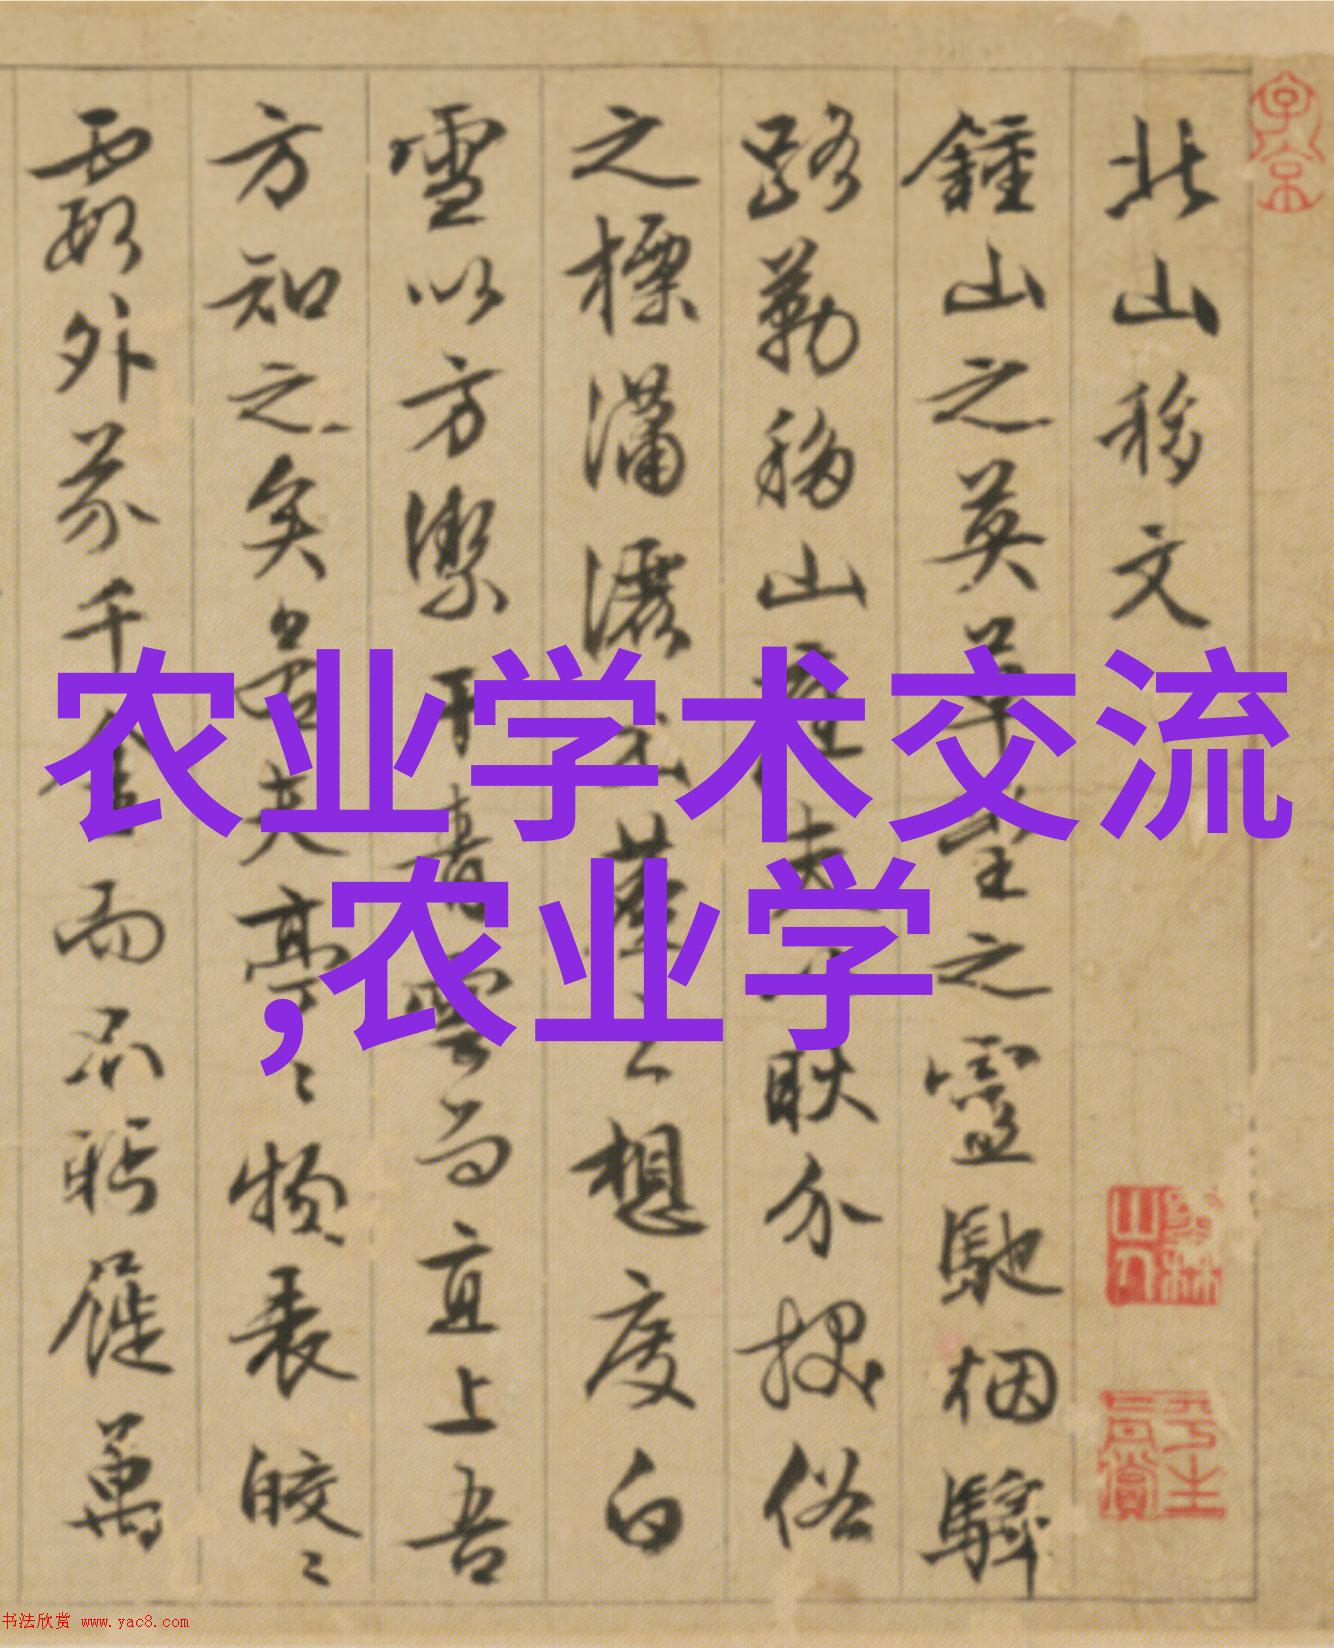 子京
北山移文
墨林山人
平生真賞
鍾山之英草堂之靈馳烟驛
路勒移山庭夫以耿介拔俗
之標瀟灑出塵之想度白
雪以方潔干青雲而直上吾
方知之矣夫亭〻物表皎〻
霞外芥千金而不眄屣萬
农业学术交流
,农业学
书法欣赏 www.yac8.com